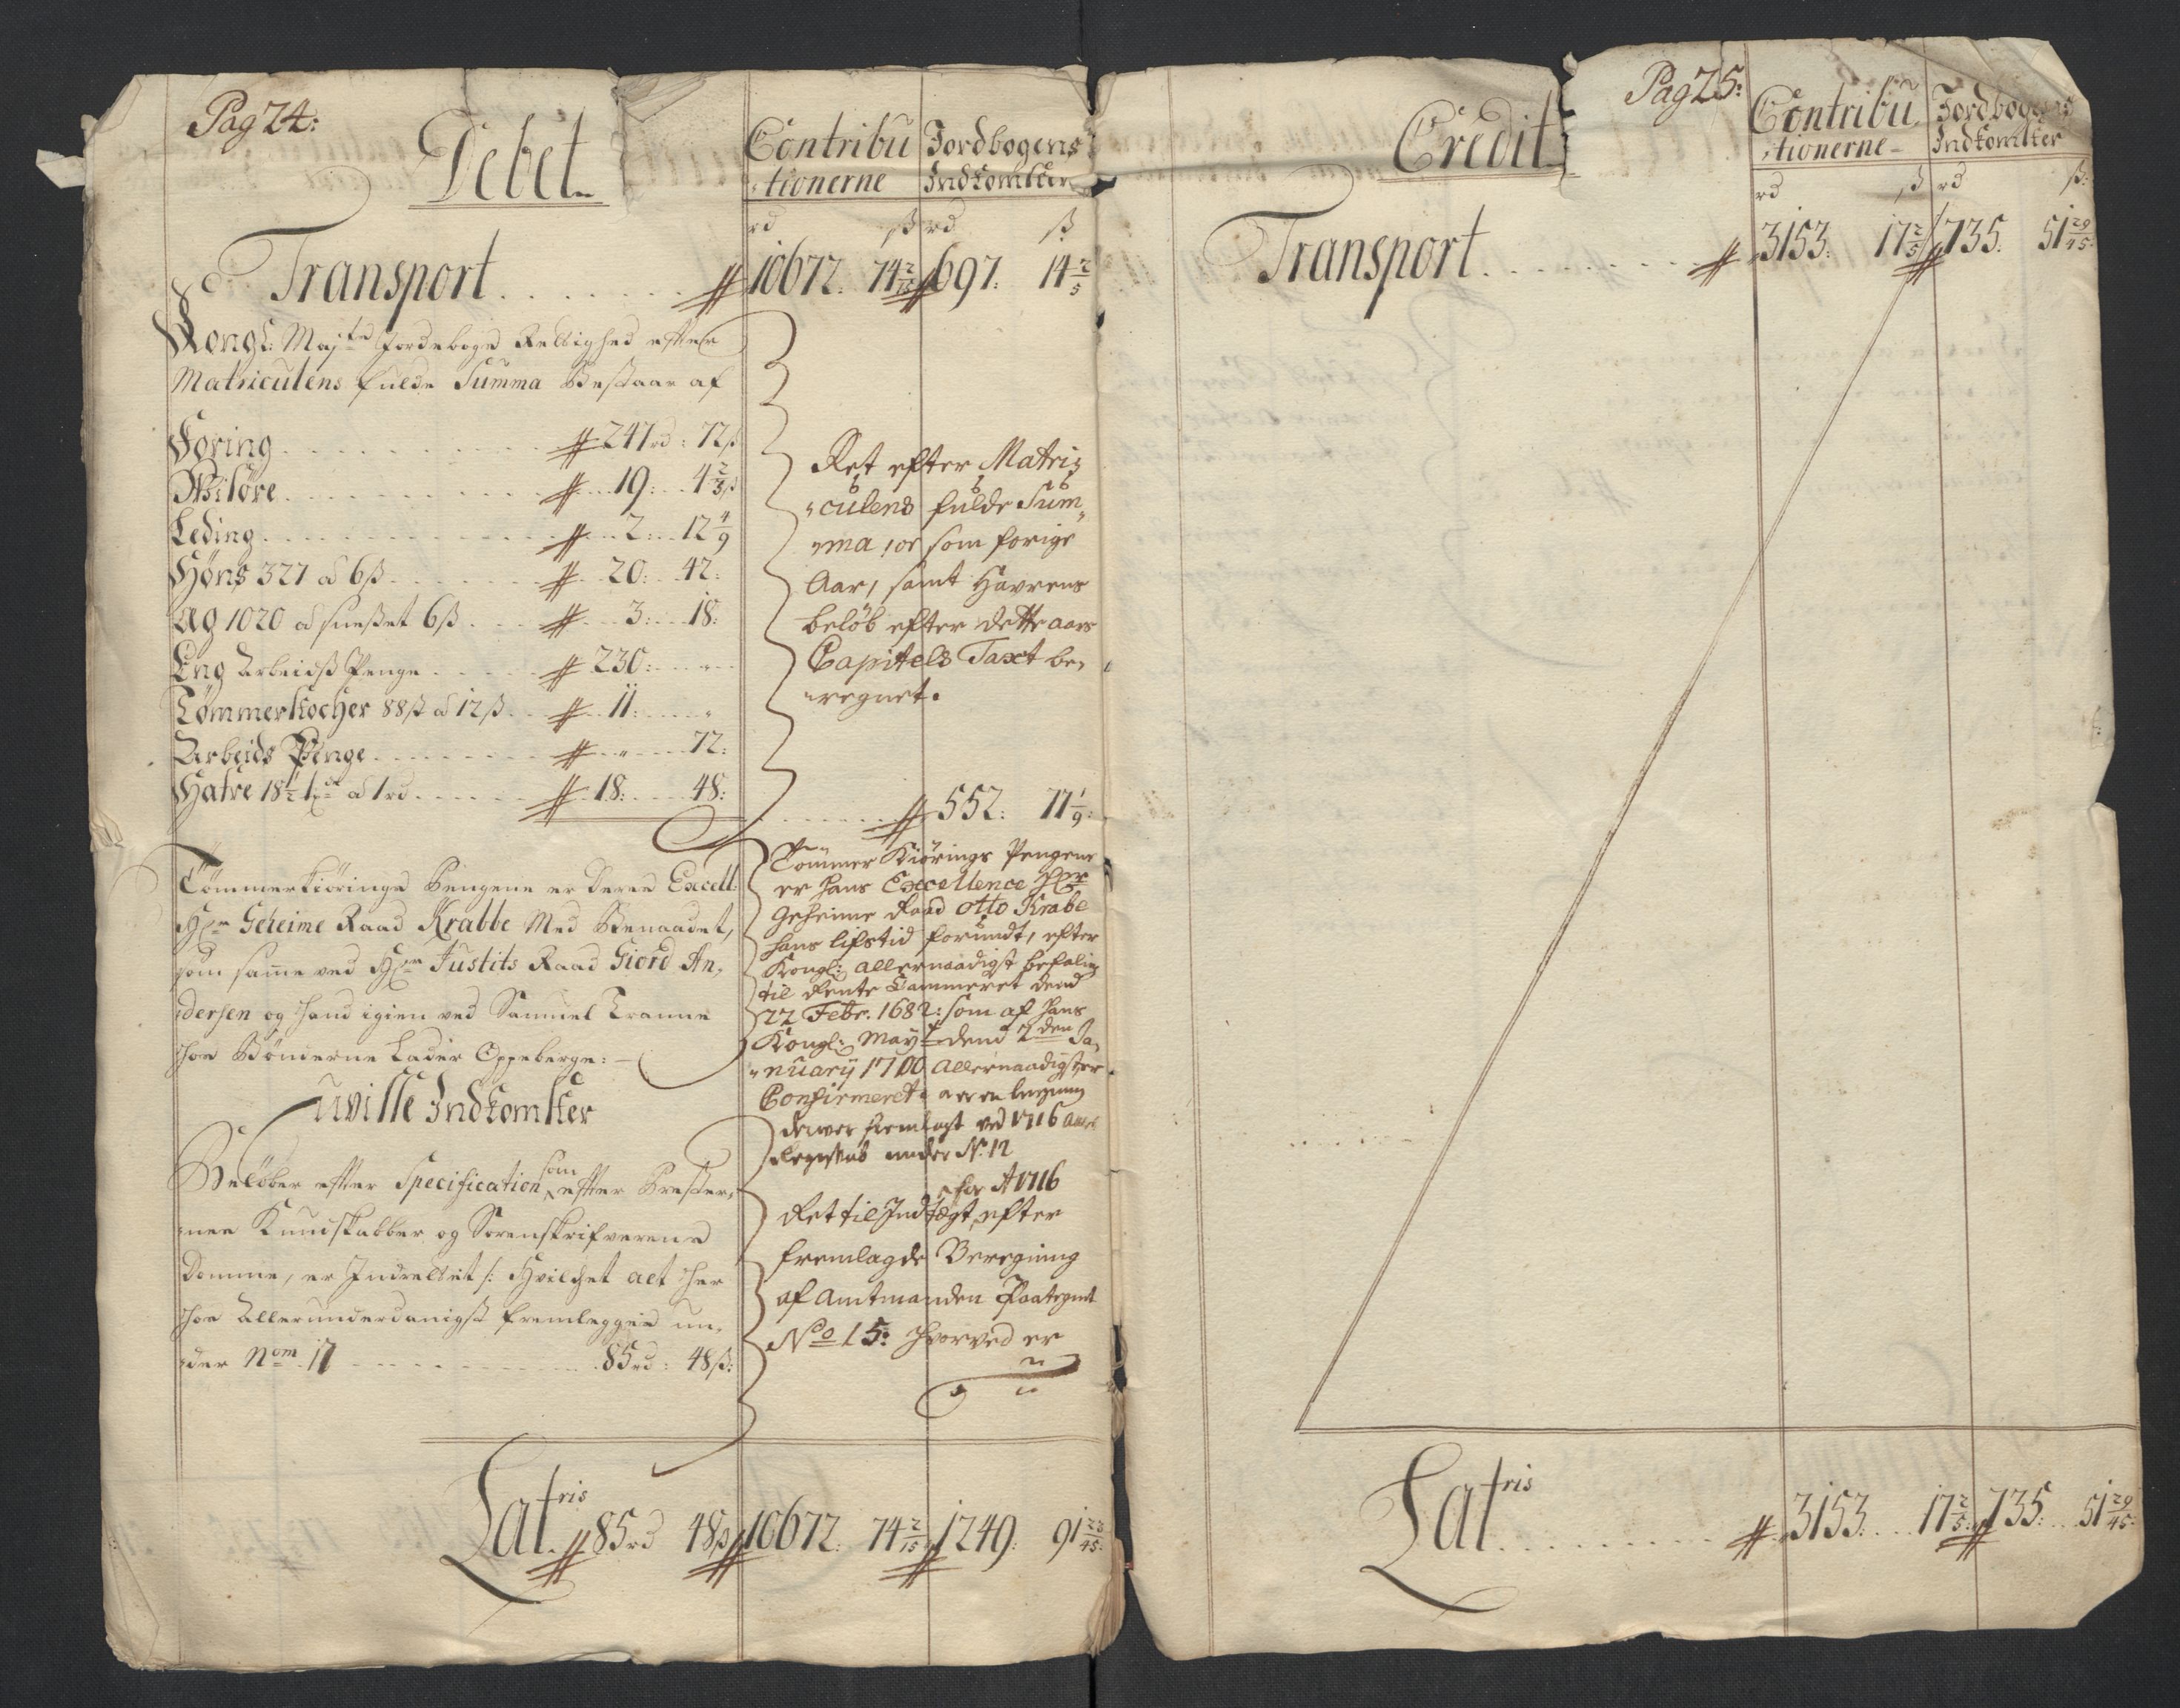 Pag 24:
Debet
Contribu
Jordbogens
tionerne
Indkomster
rd ß rd ß
Transport # 10672: 74 2/15 # 697: 14 2/5
Kongl: Majts Jordebogs Rettighed efter
Matriculens fulde Summa Bestaar af
Foring # 247 rd: 72 ß
Wiløre # 19: 4 2/3 ß
Leding # 2: 12 4/9
Høns 327 a 6 ß # 20: 42:
Æg 1020 a sneset 6 ß # 3: 18:
Eng Arbeids Penge # 230: "
Tømmerkocher 88 st a 12 ß # 11: "
Arbeids Penge # " 72:
Hafre 18 1/2 tdr a 1 rd # 18: 48:
Ret efter Matri
culens fulde Sum
ma, som forige
Aar, samt Havrens
beløb efter dette aars
Capitels Taxt be
regnet.
# 552: 77 1/9:
Tømmerkiørings Pengene er deres Excell:
Hr Geheime Raad Krabbe Med Benaadet,
som samme ved Hr Justits Raad Giord An
dersen og hand igien ved Samuel Tranne
hos Bønderne Lader Oppeberge:
Tømmer Kiørings Pengene
er hans Excellence Hr
Geheime Raad Otto Krabe
hans lifstid forundt, efter
Kongl: allernaadigst befaling
til Rente Cammeret dend
22 Febr. 1682: som af hans
Kongl: Mayt dend 2den Ja
nuary 1700 allernaadigst er
Confirmeret.
fremlagt ved 1716 aars
Regnskab under No. 12
Uvisse Indkomster
Beløber efter Specification som efter Præster
nes Kundskabber og Sorenskrifverens
Domme, er Indrettet /: Hvilchet alt her
hos Allerunderdanigst fremlegges un
der Nom. 17 85 rd: 48 ß:
for Ao 1716
Ret til Indtægt efter
fremlagde Beregning
af Amtmanden Paategnet
No 15: hvorved er
Latris # 85 rd 48 ß # 10672: 74 2/15 # 1249: 91 23/45:
Pag 25:
Credit
Contribu
Jordbogens
tionerne
Indkomster
rd ß rd ß:
Transport # 3153: 17 2/5 # 735: 51 29/45:
Latris # 3153: 17 2/5: # 735: 51 29/45: